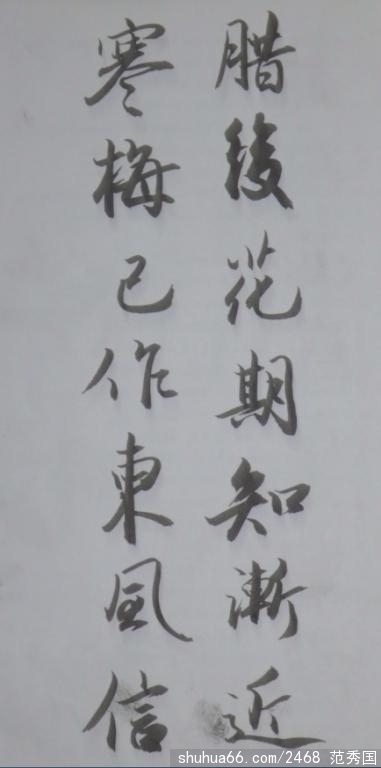 腊後花期知漸近
寒梅已作東風信
shuhua66.com/2468 范秀国